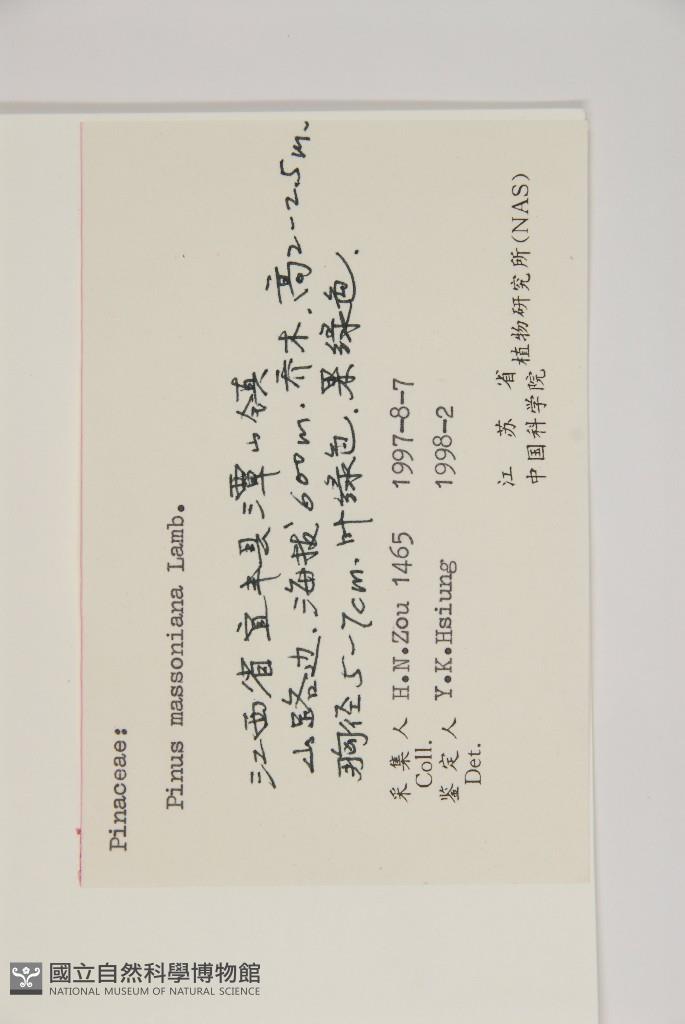 Pinaceae:
Pinus massoniana Lamb.
江西省宜丰县潭山镇
山路边.海拔600m.乔木.高2-2.5m.
胸径5-7cm.叶绿色.果绿色.
采集人 H.N.Zou 1465 1997-8-7
Coll.
鉴定人 Y.K.Hsiung 1998-2
Det.
江苏省
中国科学院植物研究所(NAS)
國立自然科學博物館
NATIONAL MUSEUM OF NATURAL SCIENCE